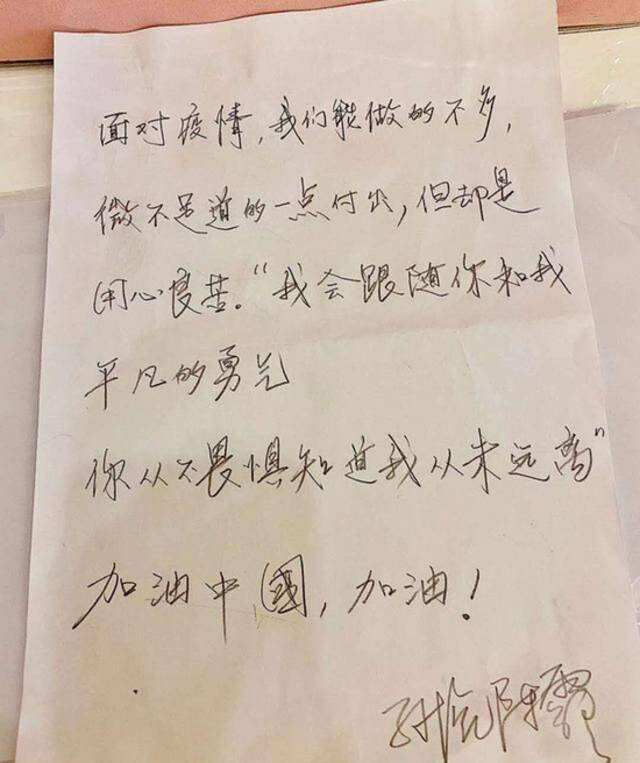 面对疫情，我们能做的不多，
微不足道的一点付出，但却是
用心良苦．“我会跟随你和我
平凡的勇气
你从不畏惧知道我从未远离”
加油中國，加油！